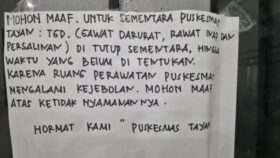 MOHON MAAF. UNTUK SEMENTARA PUSKESMAS
TAYAN : IGD. (GAWAT DARURAT, RAWAT INAP DAN
PERSALINAN) DI TUTUP SEMENTARA, HINGGA
WAKTU YANG BELUM DI TENTUKAN.
KARENA RUANG PERAWATAN PUSKESMAS
MENGALAMI KEJEBOLAN. MOHON MAAF
ATAS KETIDAK NYAMANANNYA.
HORMAT KAMI " PUSKESMAS TAYAN